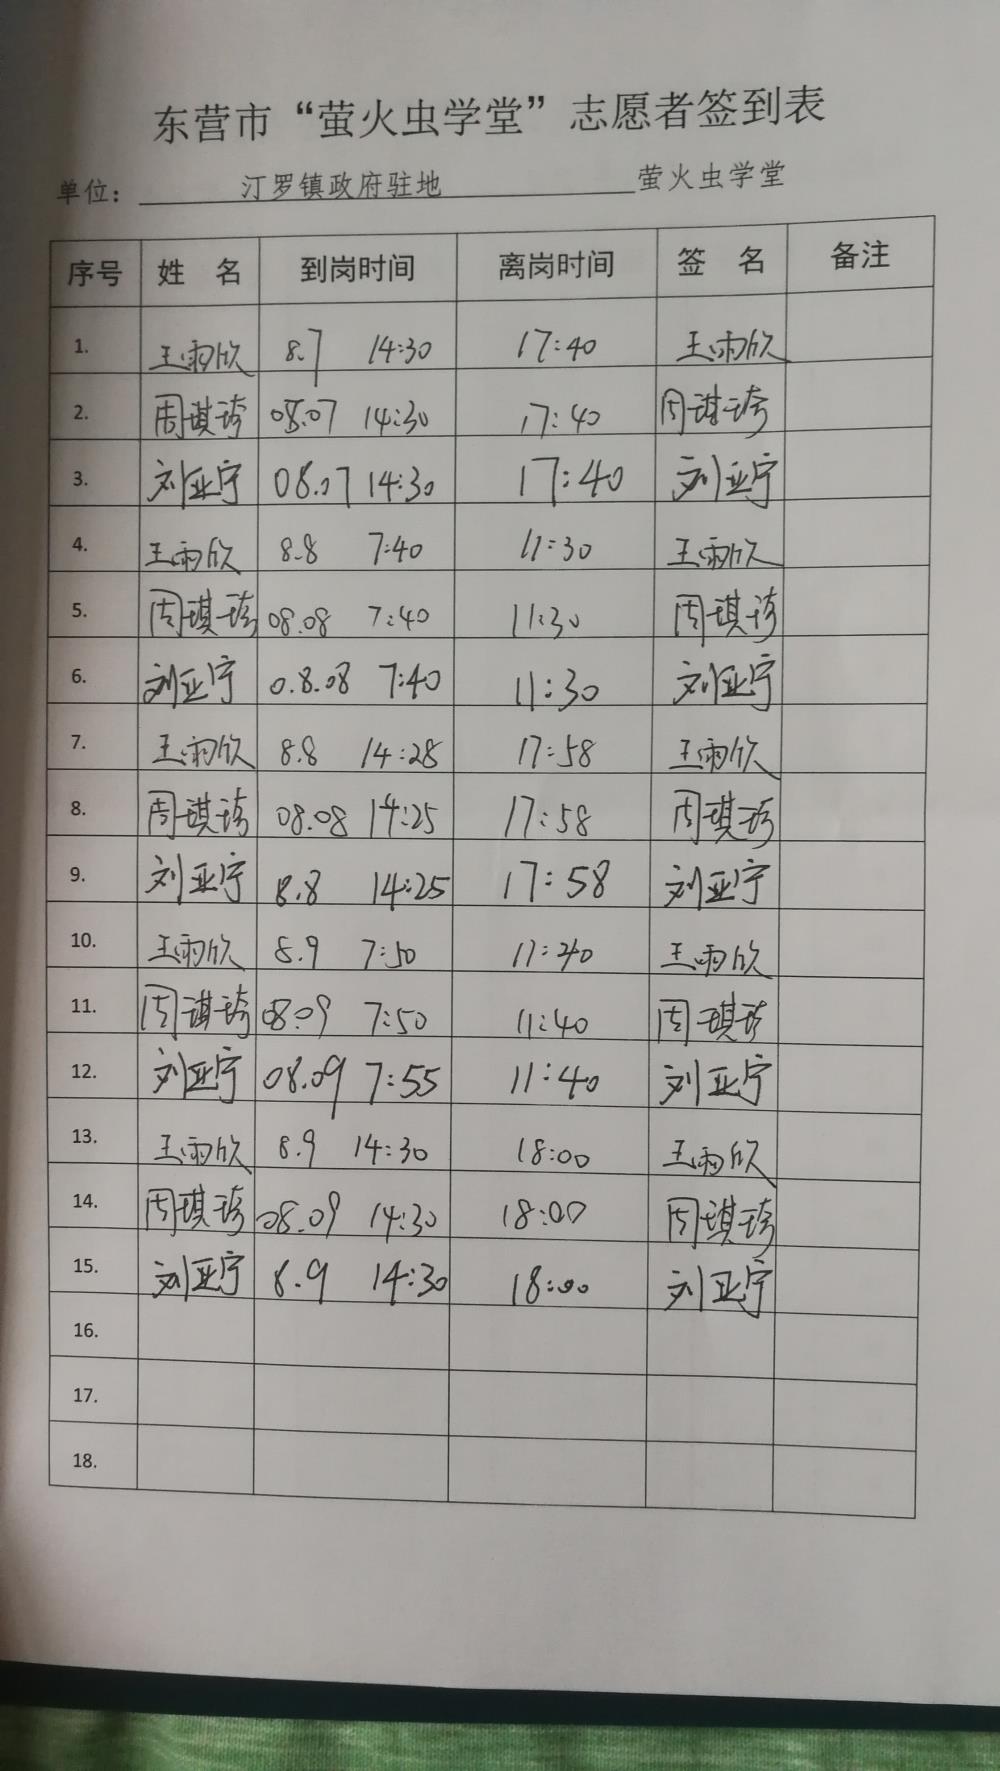 东营市“萤火虫学堂”志愿者签到表
单位： 汀罗镇政府驻地 萤火虫学堂
序号 姓 名 到岗时间 离岗时间 签 名 备注
1. 王雨欣 8.7 14:30 17:40 王雨欣
2. 周琪琦 08.07 14:30 17:40 周琪琦
3. 刘亚宁 08.07 14:30 17:40 刘亚宁
4. 王雨欣 8.8 7:40 11:30 王雨欣
5. 周琪琦 08.08 7:40 11:30 周琪琦
6. 刘亚宁 0.8.08 7:40 11:30 刘亚宁
7. 王雨欣 8.8 14:28 17:58 王雨欣
8. 周琪琦 08.08 14:25 17:58 周琪琦
9. 刘亚宁 8.8 14:25 17:58 刘亚宁
10. 王雨欣 8.9 7:50 11:40 王雨欣
11. 周琪琦 08.09 7:50 11:40 周琪琦
12. 刘亚宁 08.09 7:55 11:40 刘亚宁
13. 王雨欣 8.9 14:30 18:00 王雨欣
14. 周琪琦 08.09 14:30 18:00 周琪琦
15. 刘亚宁 8.9 14:30 18:00 刘亚宁
16.
17.
18.